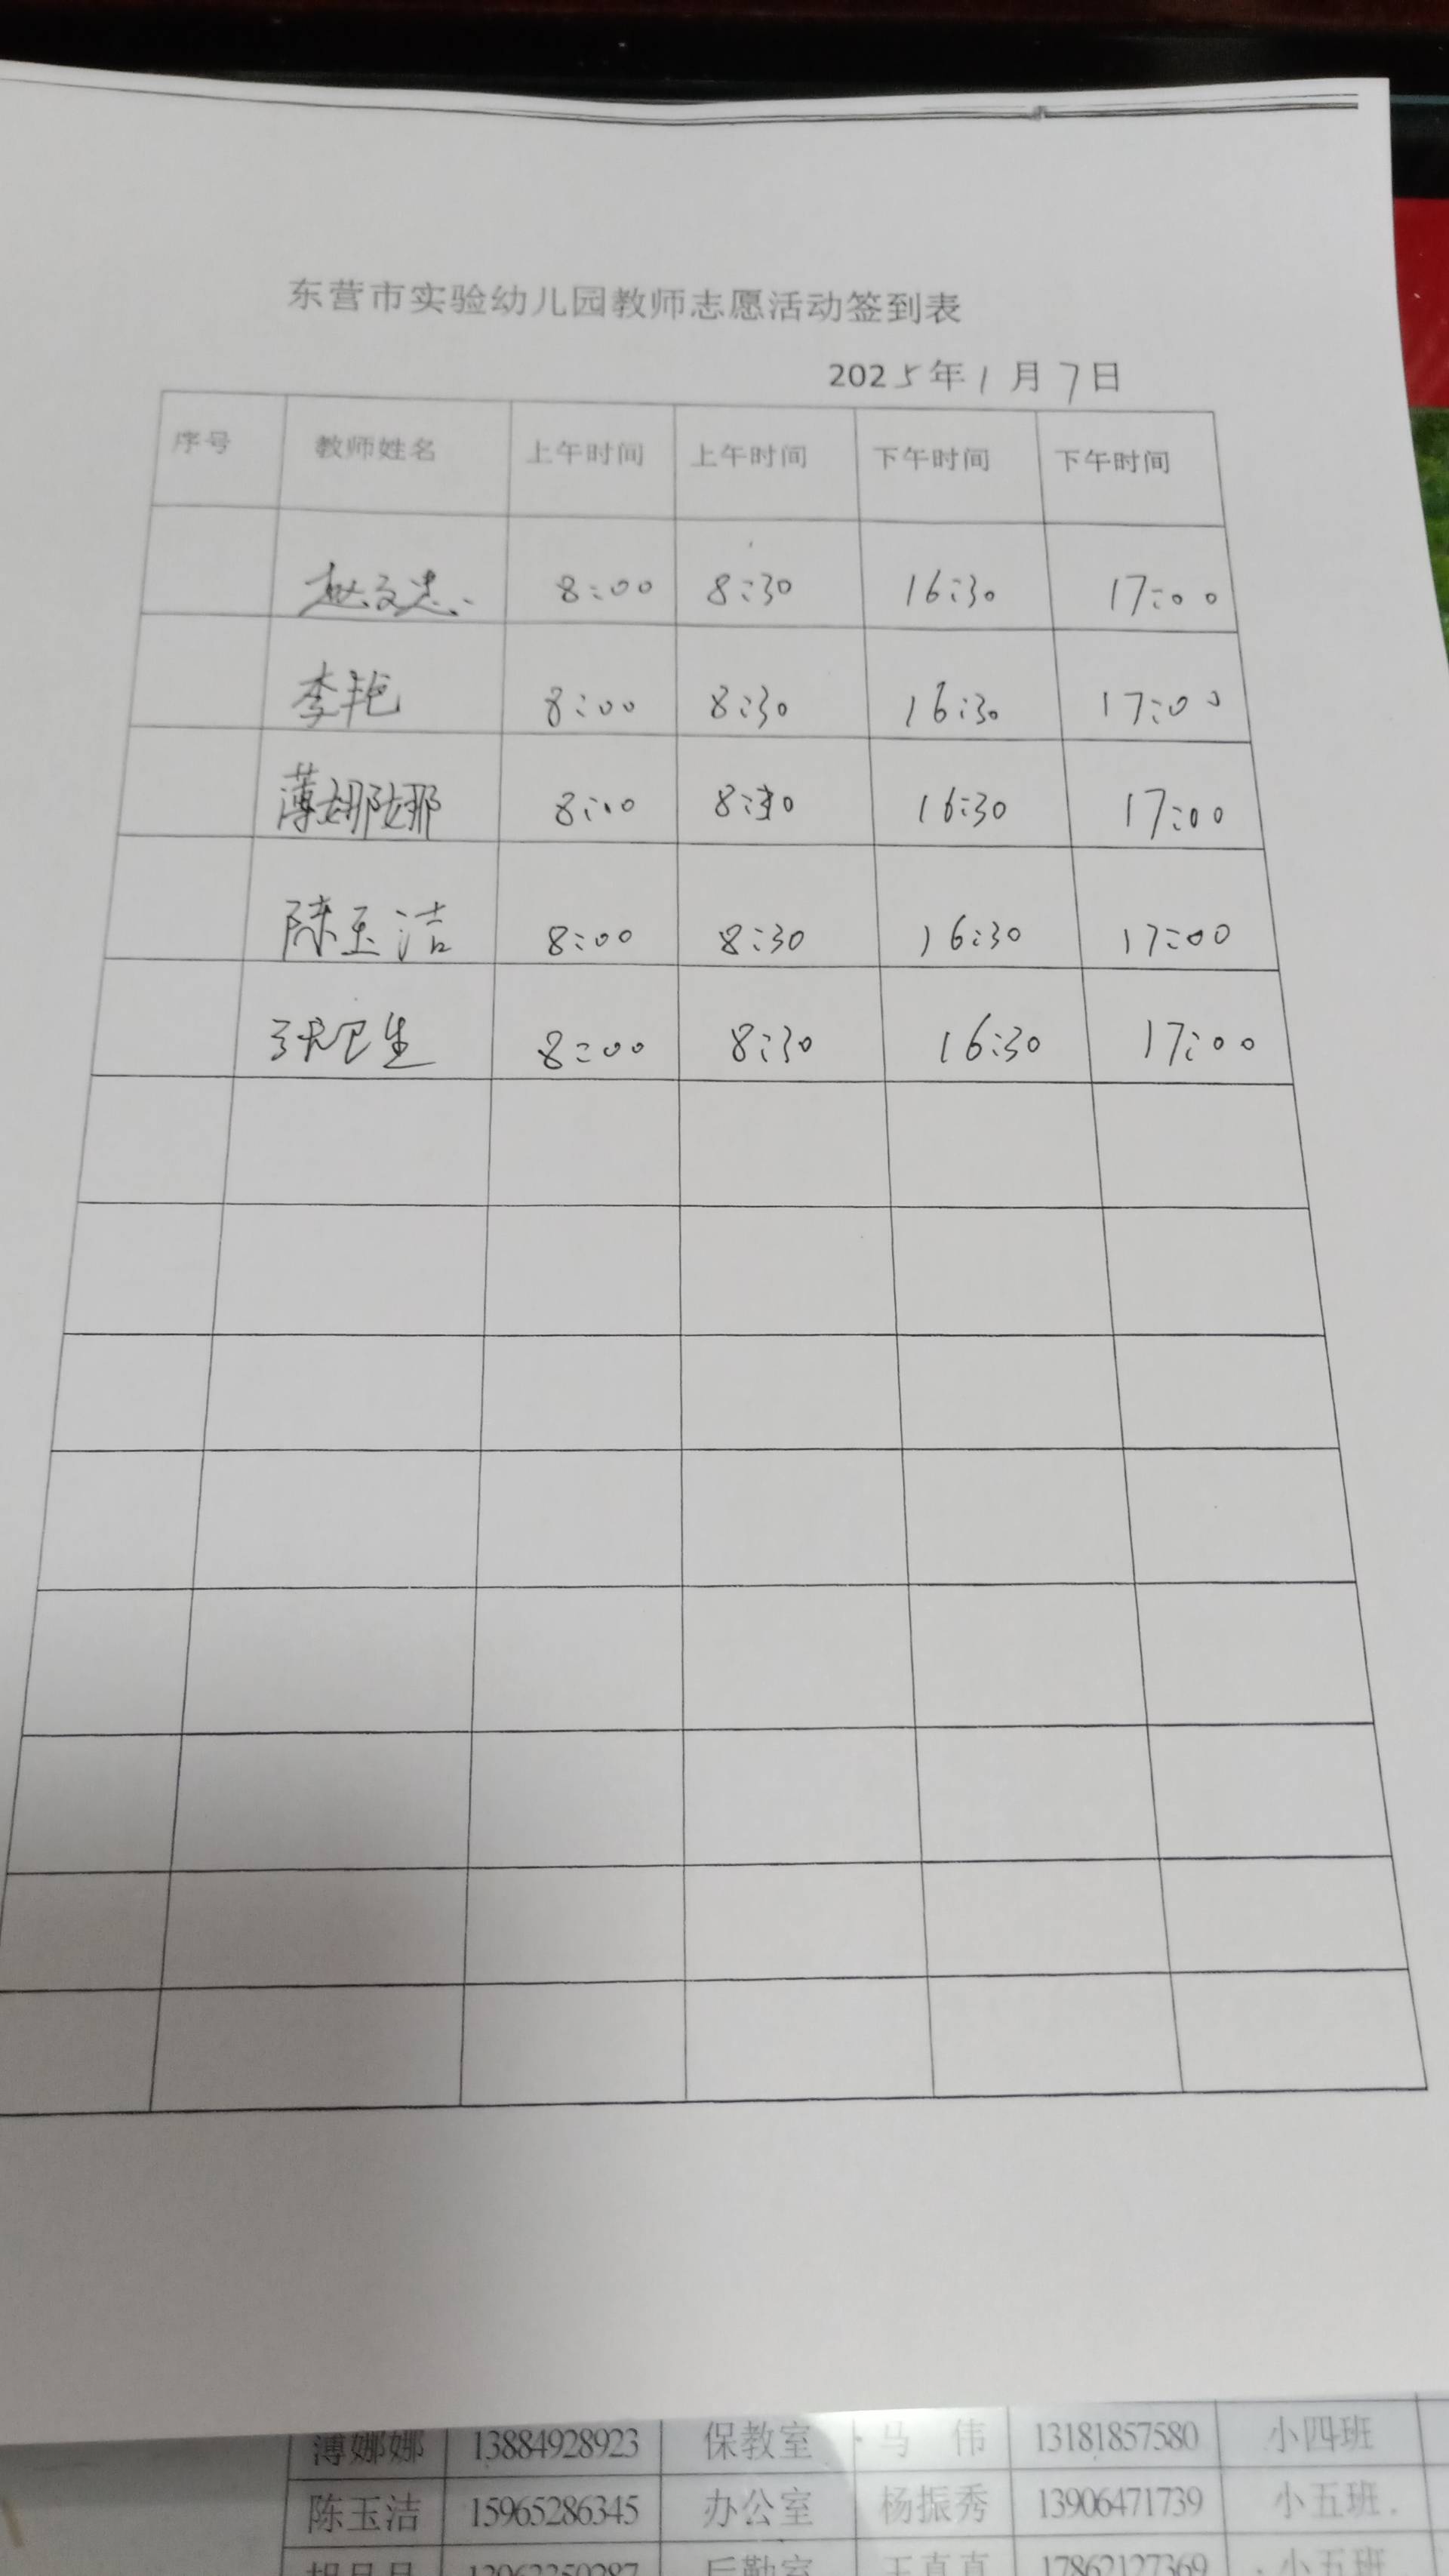 东营市实验幼儿园教师志愿活动签到表
2025年1月7日
序号 教师姓名 上午时间 上午时间 下午时间 下午时间
赵文忠 8:00 8:30 16:30 17:00
李艳 8:00 8:30 16:30 17:00
薄娜娜 8:00 8:30 16:30 17:00
陈玉洁 8:00 8:30 16:30 17:00
张卫生 8:00 8:30 16:30 17:00
薄娜娜 13884928923 保教室 马 伟 13181857580 小四班
陈玉洁 15965286345 办公室 杨振秀 13906471739 小五班
后勤室 王真真 17862127369 小五班